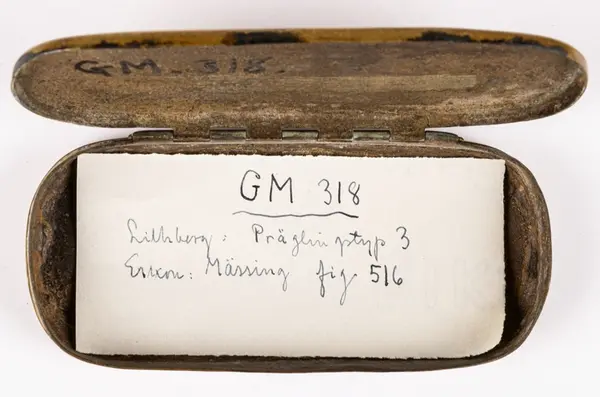 GM. 318.
GM 318
Lithberg: Präglingstyp 3
Erixon: Mässing fig 516